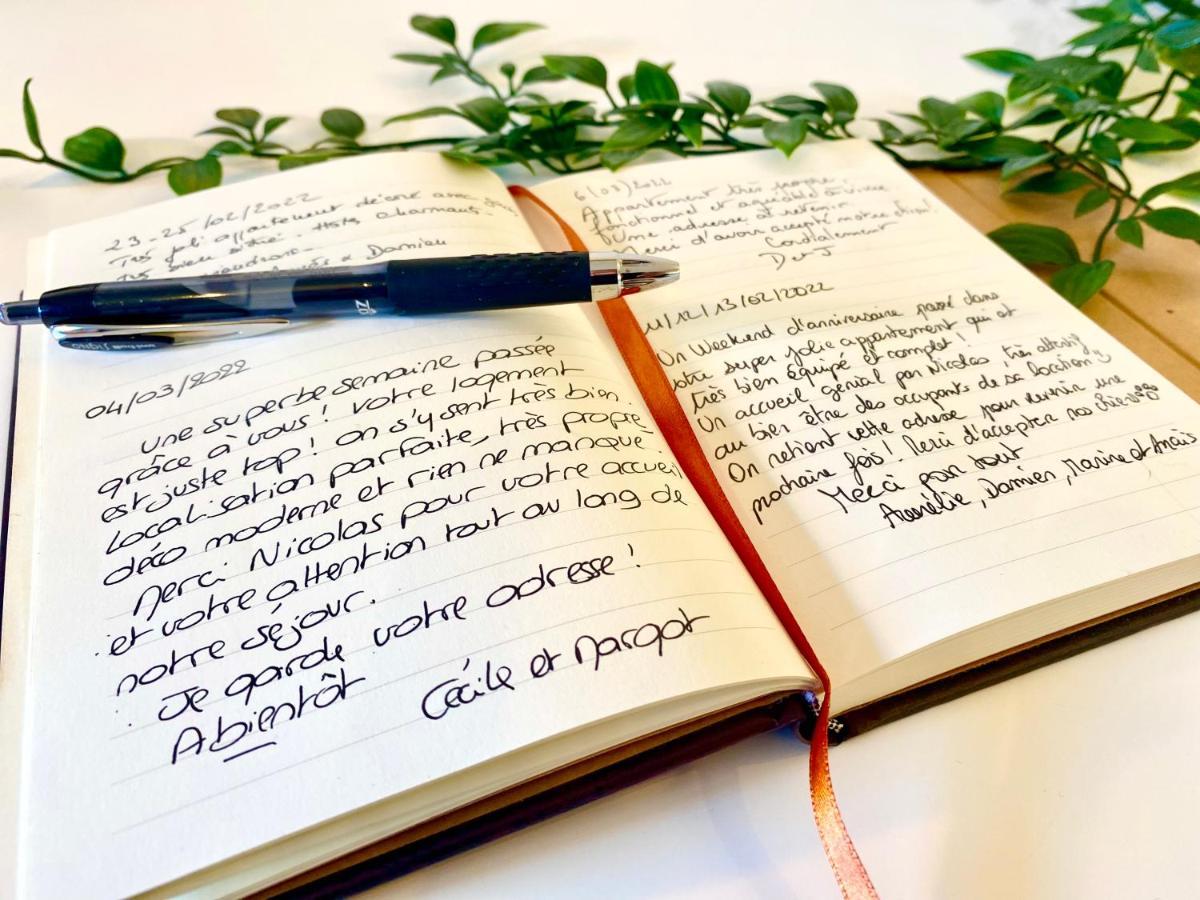 23-25/02/2022
Très joli appartement décoré avec
Très bien situé. Hôtes charmants.
& Damien
04/03/2022
Une superbe semaine passée
grâce à vous! Votre logement
est juste top! On s'y sent très bien.
Localisation parfaite, très propre
déco moderne et rien ne manque
Merci Nicolas pour votre accueil
et votre attention tout au long de
notre séjour.
Je garde votre adresse!
A bientôt
Cécile et Margot
Appartement très propre,
fonctionnel et agréable à vivre
Une adresse à retenir.
Merci d'avoir accepté notre chien!
Cordialement
D et J
11/12/13/02/2022
Un Weekend d'anniversaire passé dans
votre super jolie appartement qui est
très bien équipé et complet!
Un accueil génial par Nicolas très attentif
au bien être des occupants de sa location!
On retient cette adresse pour revenir une
prochaine fois! Merci d'accepter nos chiens
Merci pour tout
Aurélie, Damien, Marine et Anaïs